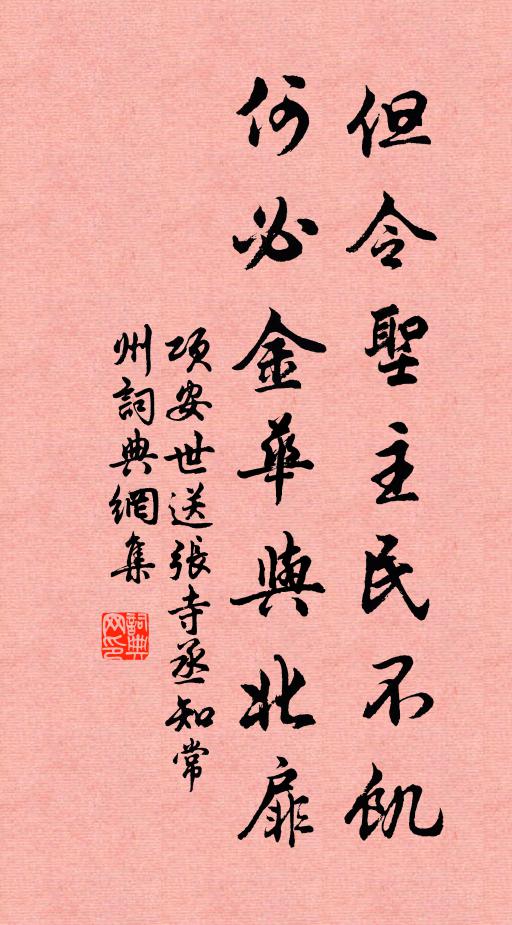 但令聖主民不飢
何必金華與北扉
項安世送張寺丞知常
州詞典網集
詞典网印